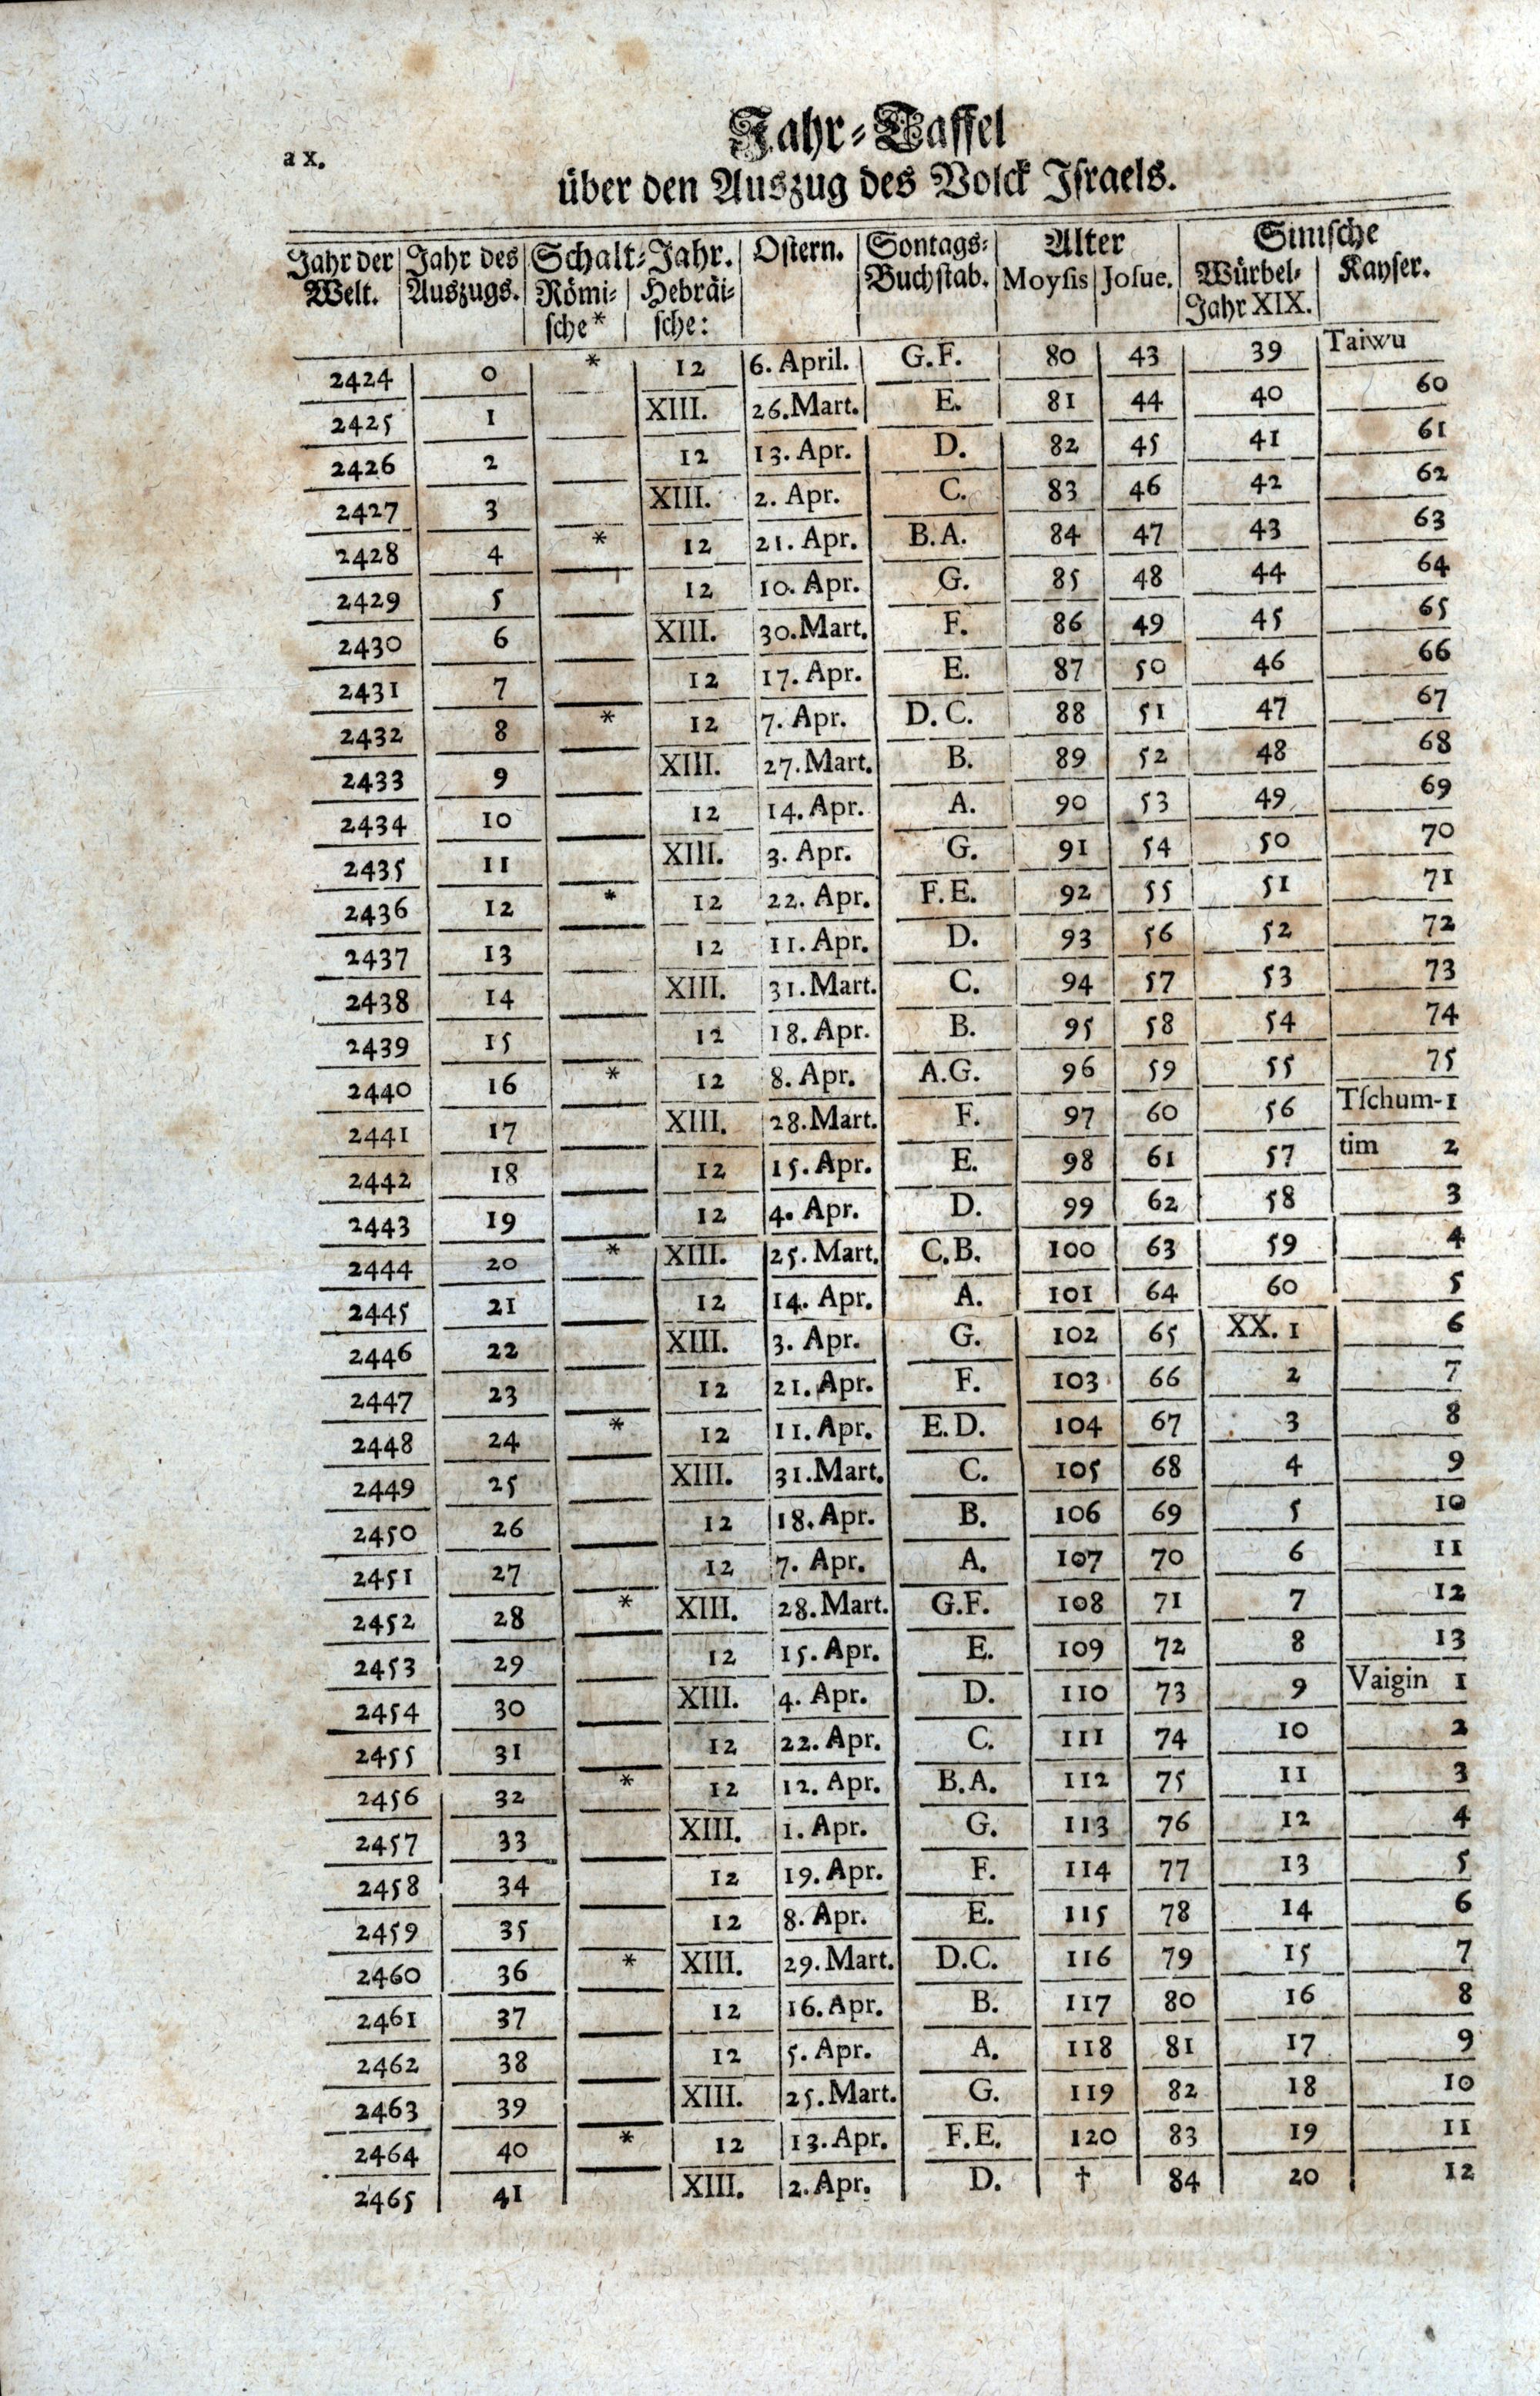 Jahr-Taffel
a x.
über den Auszug des Volck Iſraels.
Jahr der Jahr des Schalt-Jahr. Oſtern. Sontags- Alter Siniſche
Welt. Auszugs. Römi- Hebräi- Buchſtab. Moyſis Joſue. Würbel- Kayſer.
ſche* ſche: Jahr XIX.
2424 0 * 12 6. April. G.F. 80 43 39 Taiwu
2425 1 XIII. 26.Mart. E. 81 44 40 60
2426 2 12 13. Apr. D. 82 45 41 61
2427 3 XIII. 2. Apr. C. 83 46 42 62
2428 4 * 12 21. Apr. B.A. 84 47 43 63
2429 5 12 10. Apr. G. 85 48 44 64
2430 6 XIII. 30.Mart. F. 86 49 45 65
2431 7 12 17. Apr. E. 87 50 46 66
2432 8 * 12 7. Apr. D.C. 88 51 47 67
2433 9 XIII. 27.Mart. B. 89 52 48 68
2434 10 12 14. Apr. A. 90 53 49 69
2435 11 XIII. 3. Apr. G. 91 54 50 70
2436 12 * 12 22. Apr. F.E. 92 55 51 71
2437 13 12 11. Apr. D. 93 56 52 72
2438 14 XIII. 31.Mart. C. 94 57 53 73
2439 15 12 18. Apr. B. 95 58 54 74
2440 16 * 12 8. Apr. A.G. 96 59 55 75
2441 17 XIII. 28.Mart. F. 97 60 56 Tſchum-1
2442 18 12 15. Apr. E. 98 61 57 tim 2
2443 19 12 4. Apr. D. 99 62 58 3
2444 20 * XIII. 25. Mart. C.B. 100 63 59 4
2445 21 12 14. Apr. A. 101 64 60 5
2446 22 XIII. 3. Apr. G. 102 65 XX. 1 6
2447 23 12 21. Apr. F. 103 66 2 7
2448 24 * 12 11. Apr. E.D. 104 67 3 8
2449 25 XIII. 31.Mart. C. 105 68 4 9
2450 26 12 18. Apr. B. 106 69 5 10
2451 27 12 7. Apr. A. 107 70 6 11
2452 28 * XIII. 28. Mart. G.F. 108 71 7 12
2453 29 12 15. Apr. E. 109 72 8 13
2454 30 XIII. 4. Apr. D. 110 73 9 Vaigin 1
2455 31 12 22. Apr. C. 111 74 10 2
2456 32 * 12 12. Apr. B.A. 112 75 11 3
2457 33 XIII. 1. Apr. G. 113 76 12 4
2458 34 12 19. Apr. F. 114 77 13 5
2459 35 12 8. Apr. E. 115 78 14 6
2460 36 * XIII. 29. Mart. D.C. 116 79 15 7
2461 37 12 16. Apr. B. 117 80 16 8
2462 38 12 5. Apr. A. 118 81 17 9
2463 39 XIII. 25.Mart. G. 119 82 18 10
2464 40 * 12 13.Apr. F.E. 120 83 19 11
2465 41 XIII. 2.Apr. D. † 84 20 12